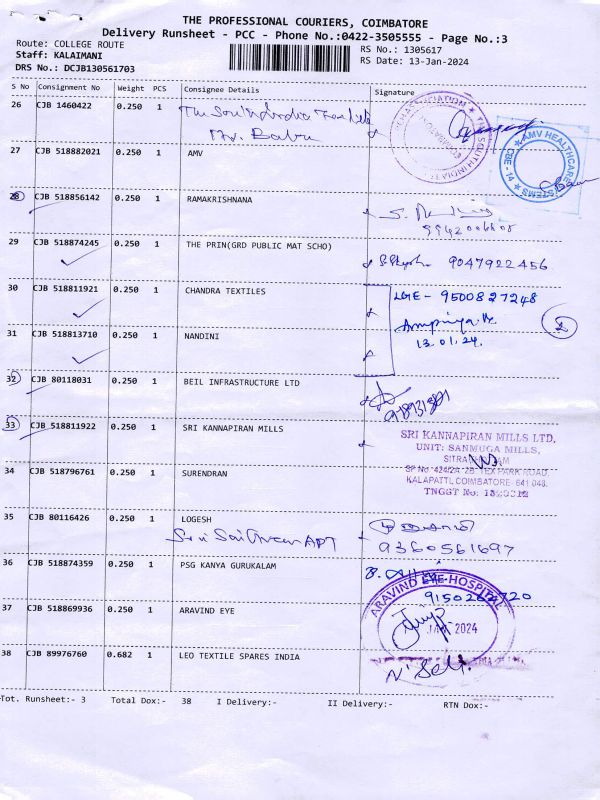 THE PROFESSIONAL COURIERS, COIMBATORE
Delivery Runsheet - PCC - Phone No.:0422-3505555 - Page No.:3
Route: COLLEGE ROUTE
Staff: KALAIMANI
DRS No.: DCJB130561703
RS No.: 1305617
RS Date: 13-Jan-2024
S No Consignment No Weight PCS Consignee Details Signature
26 CJB 1460422 0.250 1 The South India Textiles
Mr. Babu
27 CJB 518882021 0.250 1 AMV
AMV HEALTHCARE SYSTEMS CBE - 14
28 CJB 518856142 0.250 1 RAMAKRISHNANA
29 CJB 518874245 0.250 1 THE PRIN(GRD PUBLIC MAT SCHO) 9047922456
30 CJB 518811921 0.250 1 CHANDRA TEXTILES LGE - 9500827248
31 CJB 518813710 0.250 1 NANDINI
13.01.24.
2
32 CJB 80118031 0.250 1 BEIL INFRASTRUCTURE LTD
33 CJB 518811922 0.250 1 SRI KANNAPIRAN MILLS
SRI KANNAPIRAN MILLS LTD.
UNIT: SANMUGA MILLS,
KALAPATTI, COIMBATORE- 641 048.
34 CJB 518796761 0.250 1 SURENDRAN
35 CJB 80116426 0.250 1 LOGESH
9360561697
36 CJB 518874359 0.250 1 PSG KANYA GURUKALAM
37 CJB 518869936 0.250 1 ARAVIND EYE
ARAVIND EYE HOSPITAL
JAN 2024
38 CJB 89976760 0.682 1 LEO TEXTILE SPARES INDIA
Tot. Runsheet:- 3 Total Dox:- 38 I Delivery:- II Delivery:- RTN Dox:-